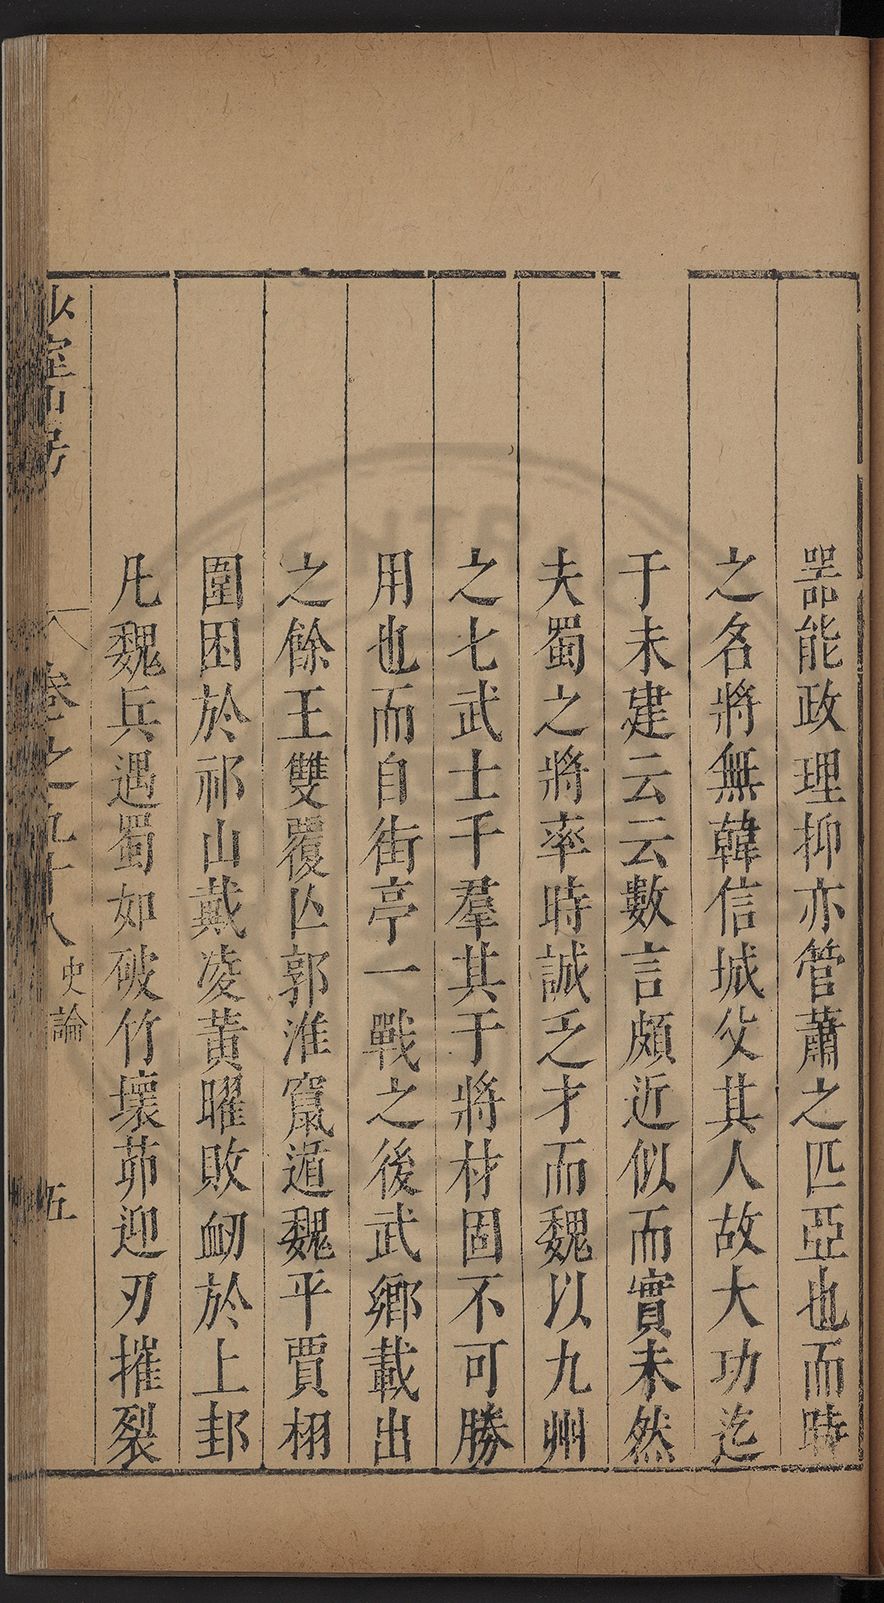 器能政理抑亦管蕭之匹亞也而時
之名將無韓信城父其人故大功迄
于未建云云數言頗近似而實未然
夫蜀之將率時誠乏才而魏以九州
之七武士千羣其于將材固不可勝
用也而自街亭一戰之後武鄉載出
之餘王雙覆亾郭淮竄遁魏平賈栩
圍困於祁山戴凌黃曜敗衂於上邽
凡魏兵遇蜀如破竹壞茆迎刃摧裂
卷之九十八
史論
五